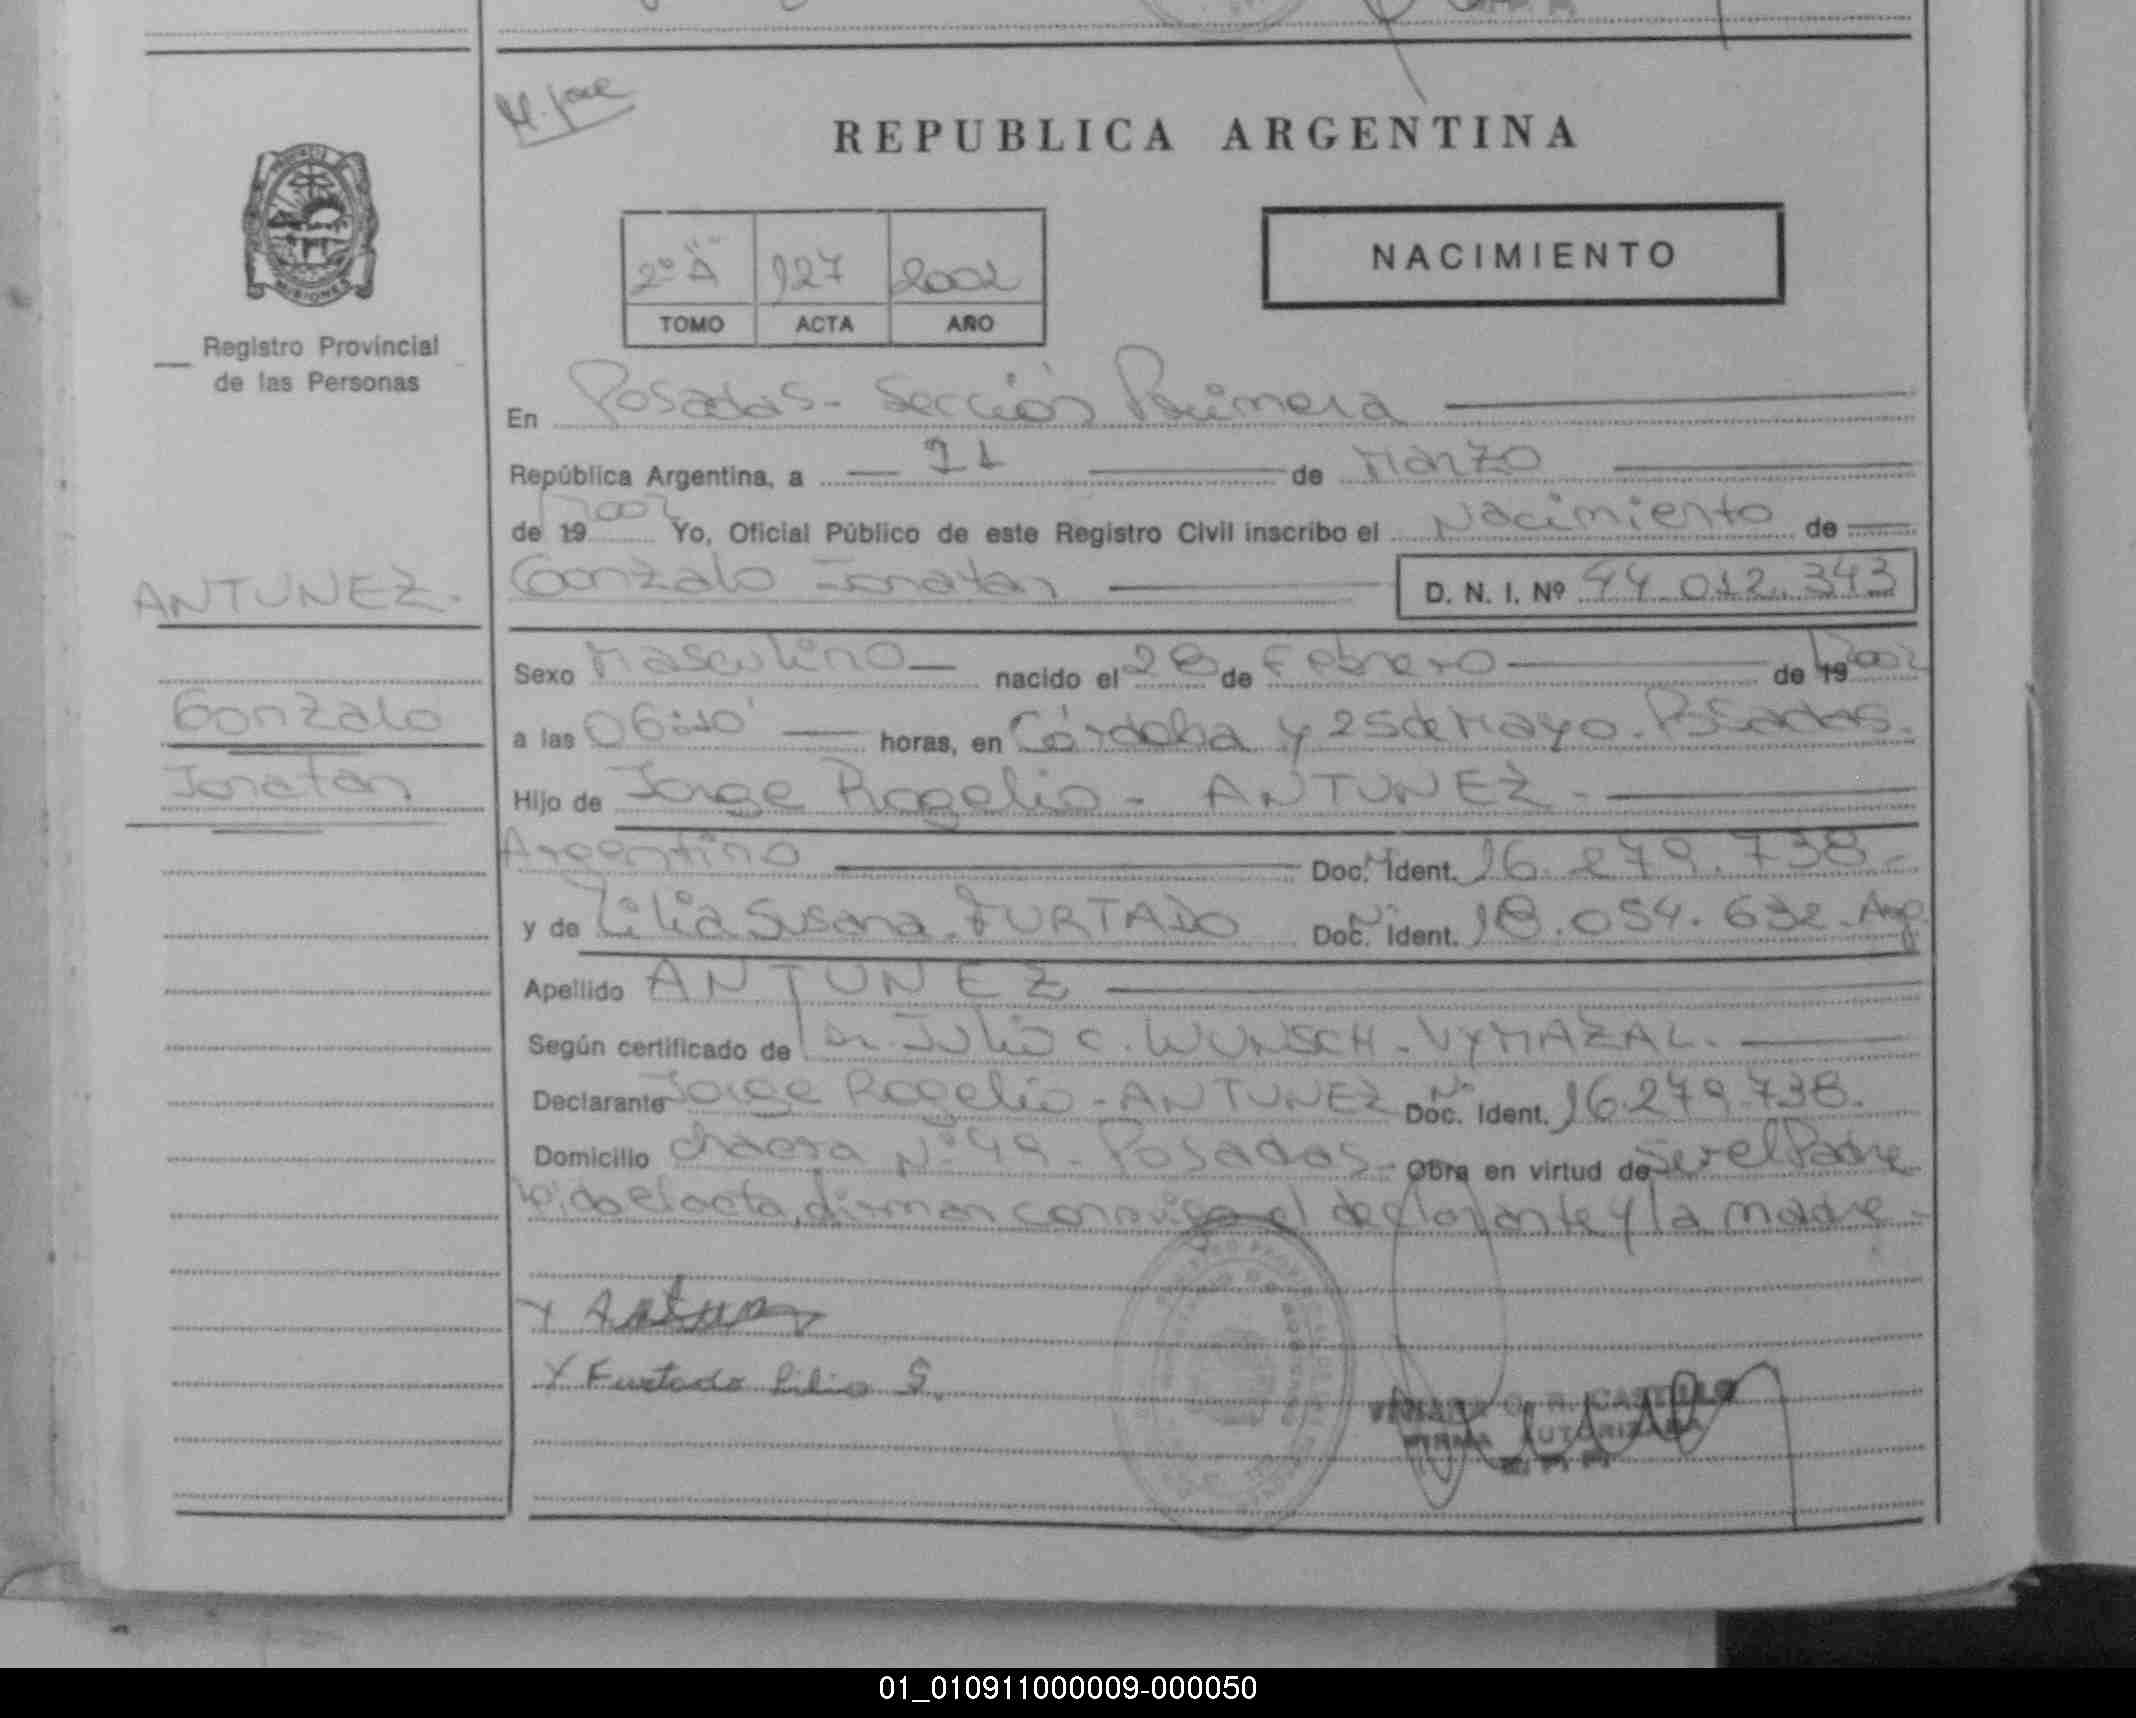 M. José
REPUBLICA ARGENTINA
2º "A" 127 2002
TOMO ACTA AÑO
NACIMIENTO
MISIONES
Registro Provincial
de las Personas
En Posadas - Sección Primera
República Argentina, a 11 de Marzo
de 19 2002 Yo, Oficial Público de este Registro Civil inscribo el Nacimiento de
Gonzalo Jonatan D. N. I. Nº 44.012.343
ANTUNEZ.
Gonzalo
Jonatan
Sexo Masculino nacido el 28 de Febrero de 19 2002
a las 06:10' horas, en Córdoba y 25 de Mayo. Posadas.
Hijo de Jorge Rogelio - ANTUNEZ -
Argentino Doc. Ident. 16.279.738 -
y de Lilia Susana. FURTADO Doc. Ident. 18.054.632 - Arg.
Apellido ANTUNEZ
Según certificado de Dr. Julio C. WUNSCH - VYMAZAL.
Declarante Jorge Rogelio - ANTUNEZ Doc. Ident. 16.279.738.
Domicilio chacra Nº 49 - Posadas - Obra en virtud de ser el Padre
leida el acta, firman conmigo el declarante y la madre -
X Antunez
X Furtado Lilia S.
O. R. CASTILLO
FIRMA AUTORIZADA
01_010911000009-000050